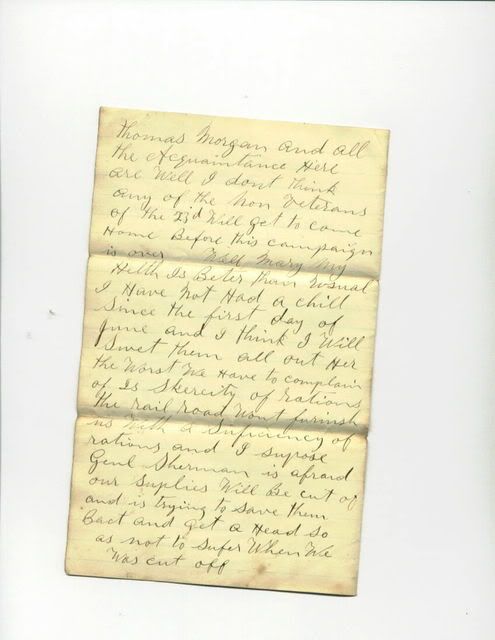 Thomas Morgan and all
the Acquaintance Here
are Well I dont think
any of the Non Veterans
of the 23d Will get to come
Home Before this campaign
is over Well Mary My
Helth Is Beter than usual
I Have Not Had a chill
Since the first day of
June and I think I Will
Swet them all out Her
the Worst We Have to complain
of Is Skercity of rations
the rail road Wont furinsh
us With a Suficiency of
rations and I supose
Genl Sherman is afraid
our suplies Will Be cut of
and is trying to save them
Bact and get a Head so
as not to sufer When We
Was cut off